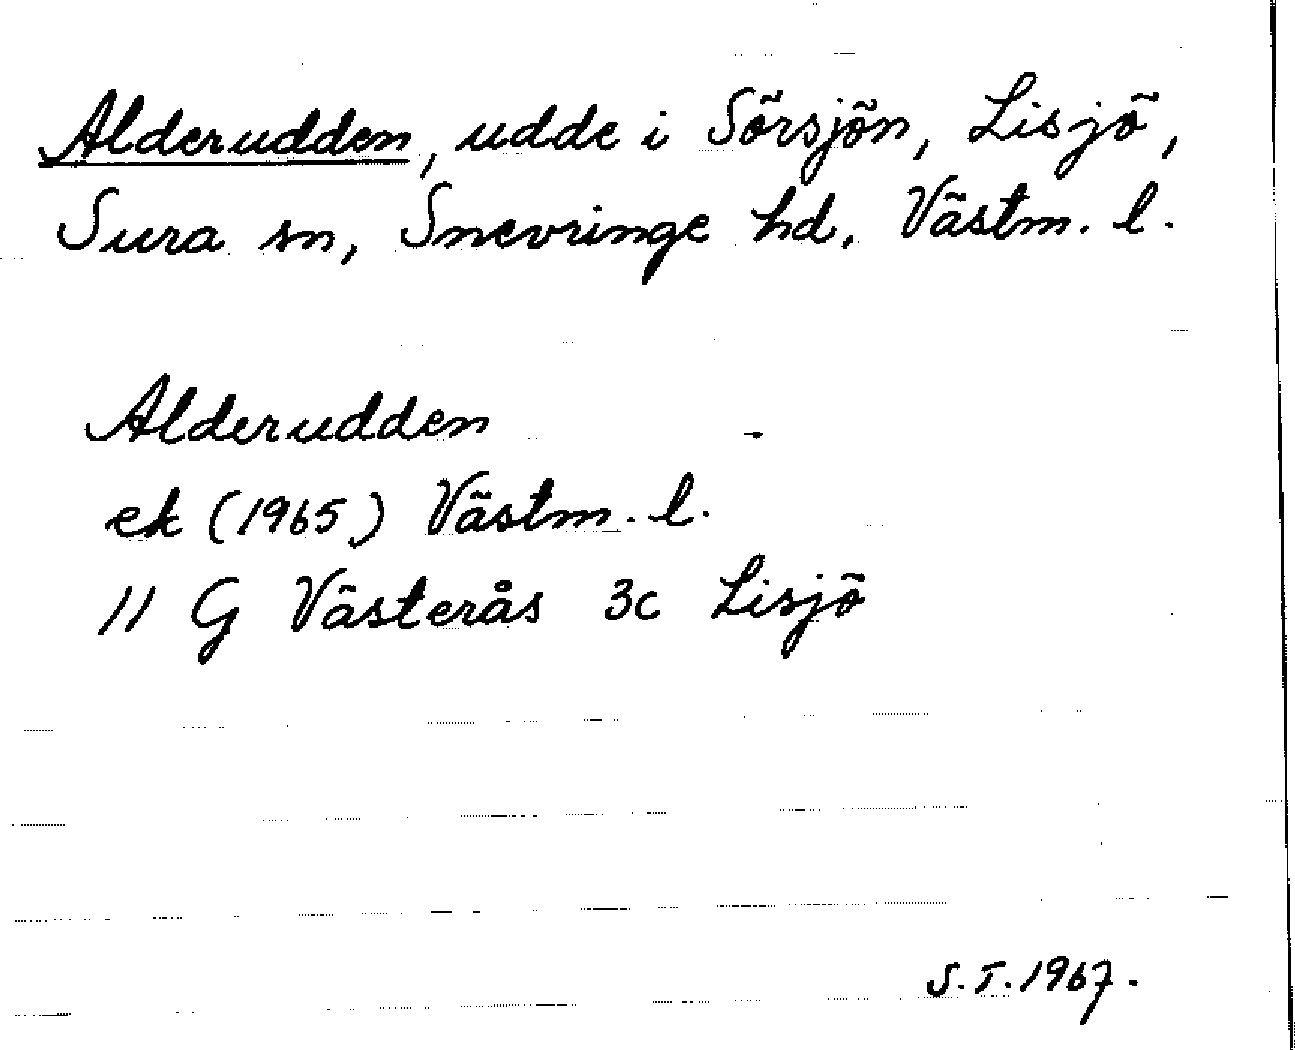 Alderudden, udde i Sörsjön, Lisjö,
Sura sn, Snevringe hd, Västm. l.
Alderudden
ek (1965) Västm. l.
11 G Västerås 3c Lisjö
S.T. 1967.